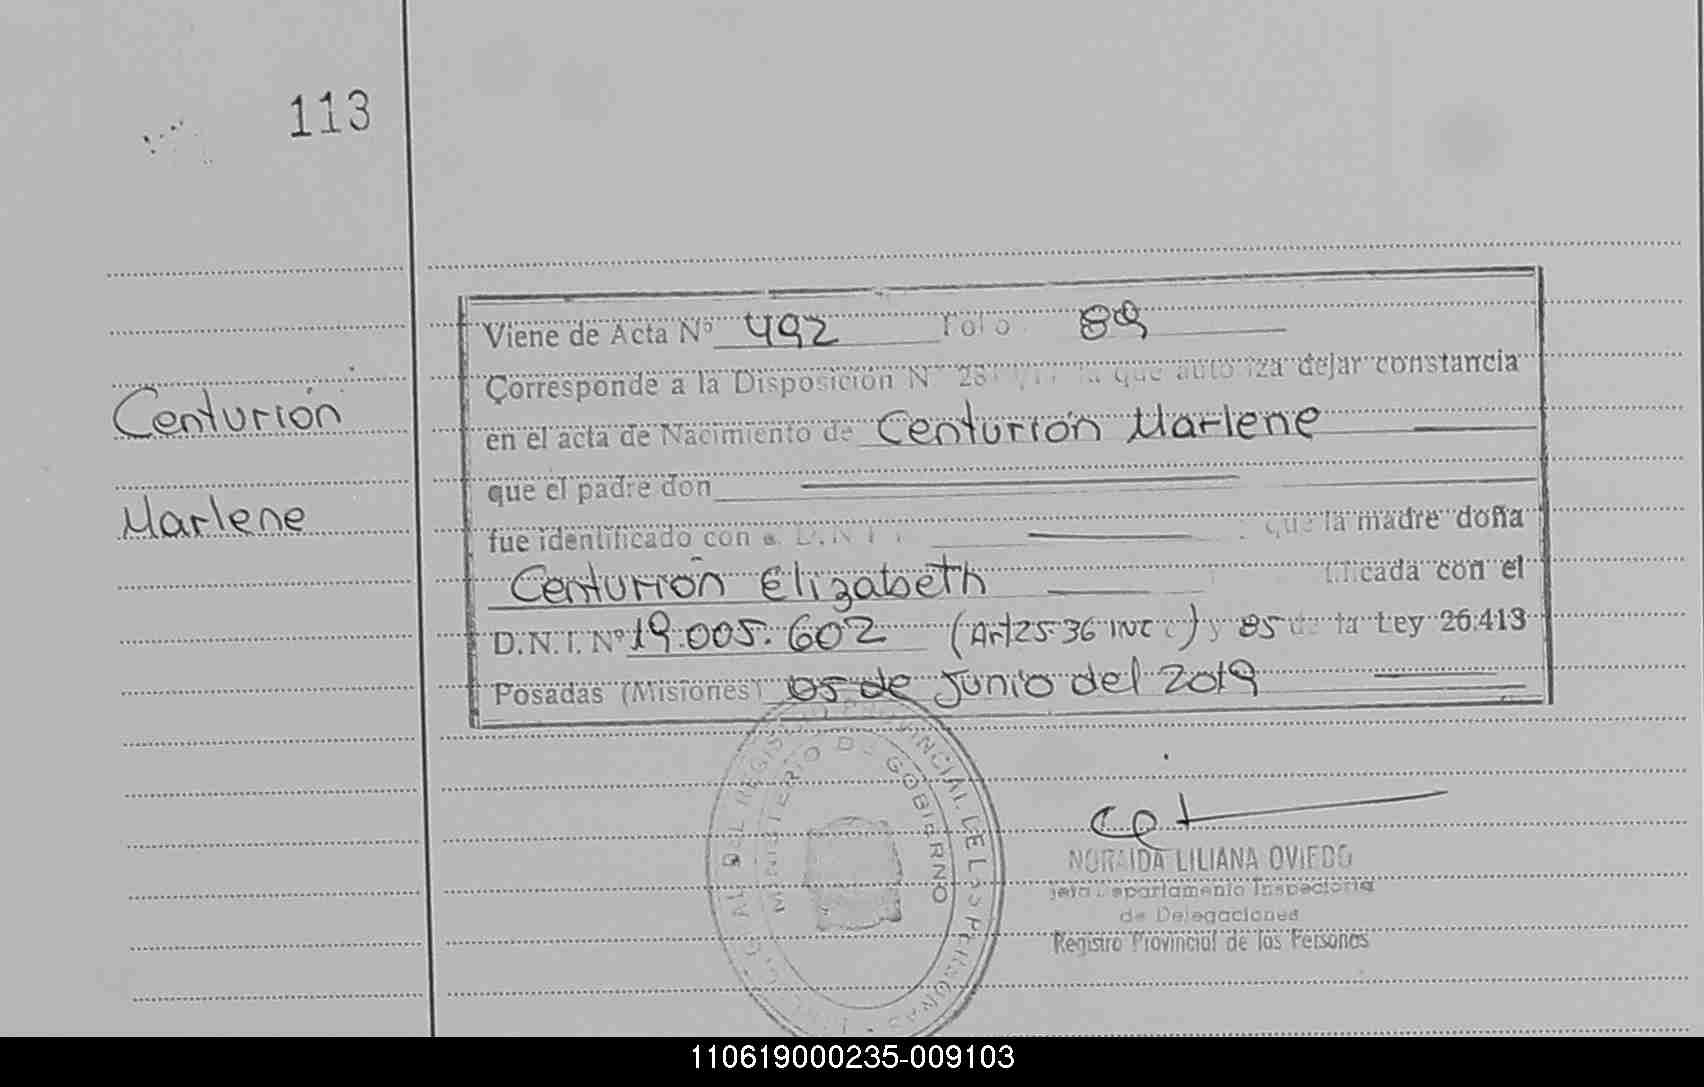 113
Viene de Acta Nº 492 Folio 89
Corresponde a la Disposición N que autoriza dejar constancia
Centurión
en el acta de Nacimiento de Centurión Marlene
que el padre don
Marlene
fue identificado con D.N.I. que la madre doña
Centurión Elizabeth con el
D.N.I. Nº 19.005.602 (Art 25-36 inc c) y 85 de la Ley 26.413
Posadas (Misiones) 05 de Junio del 2019
REGISTRO PROVINCIAL DE LAS PERSONAS
MINISTERIO DE GOBIERNO
NORAIDA LILIANA OVIEDO
Jefa Departamento Inspectoria
de Delegaciones
Registro Provincial de las Personas
110619000235-009103